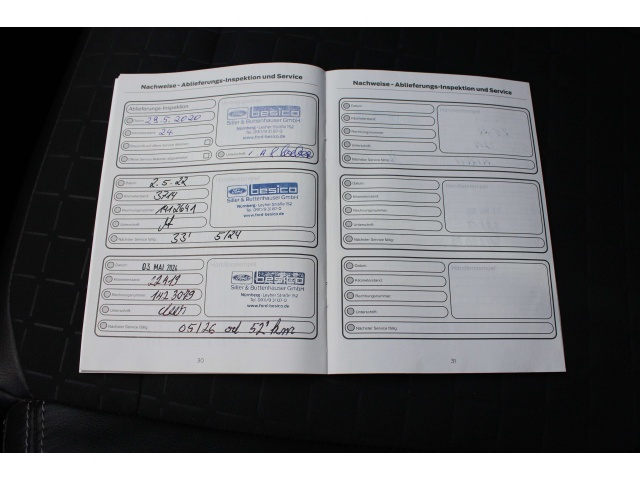 Nachweise - Ablieferungs-Inspektion und Service
Ablieferungs-Inspektion
Datum 29.5.2020
Kilometerstand 24
Unterschrift
Ford besico
Siller & Buttenhauser GmbH
Nürnberg · Leyher Straße 152
www.ford-besico.de
Datum 2.5.22
Kilometerstand 3714
Rechnungsnummer 1412641
Unterschrift
Nächster Service fällig 33' 5/24
Ford besico
Siller & Buttenhauser GmbH
Nürnberg · Leyher Straße 152
www.ford-besico.de
Datum 03. MAI 2024
Kilometerstand 22419
Rechnungsnummer
Unterschrift
Nächster Service fällig 05/26 od 52' km
Ford besico
Siller & Buttenhauser GmbH
Nürnberg · Leyher Straße 152
www.ford-besico.de
30
Nachweise - Ablieferungs-Inspektion und Service
Datum
Kilometerstand
Rechnungsnummer
Unterschrift
Nächster Service fällig
Datum
Kilometerstand
Rechnungsnummer
Unterschrift
Nächster Service fällig
Datum
Kilometerstand
Rechnungsnummer
Unterschrift
Nächster Service fällig
31